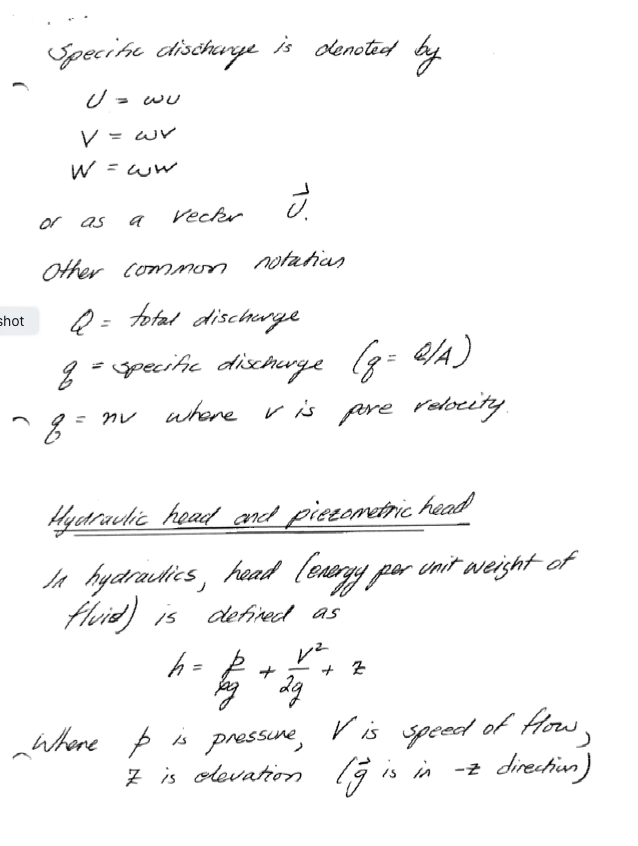 Specific discharge is denoted by
U = ωu
V = ωv
W = ωw
or as a vector U⃗.
Other common notation
shot
Q = total discharge
q = specific discharge (q = Q/A)
q = nv where v is pore velocity.
Hydraulic head and piezometric head
In hydraulics, head (energy per unit weight of
fluid) is defined as
h = p/ρg + V²/2g + z
Where p is pressure, V is speed of flow,
z is elevation (g⃗ is in -z direction)